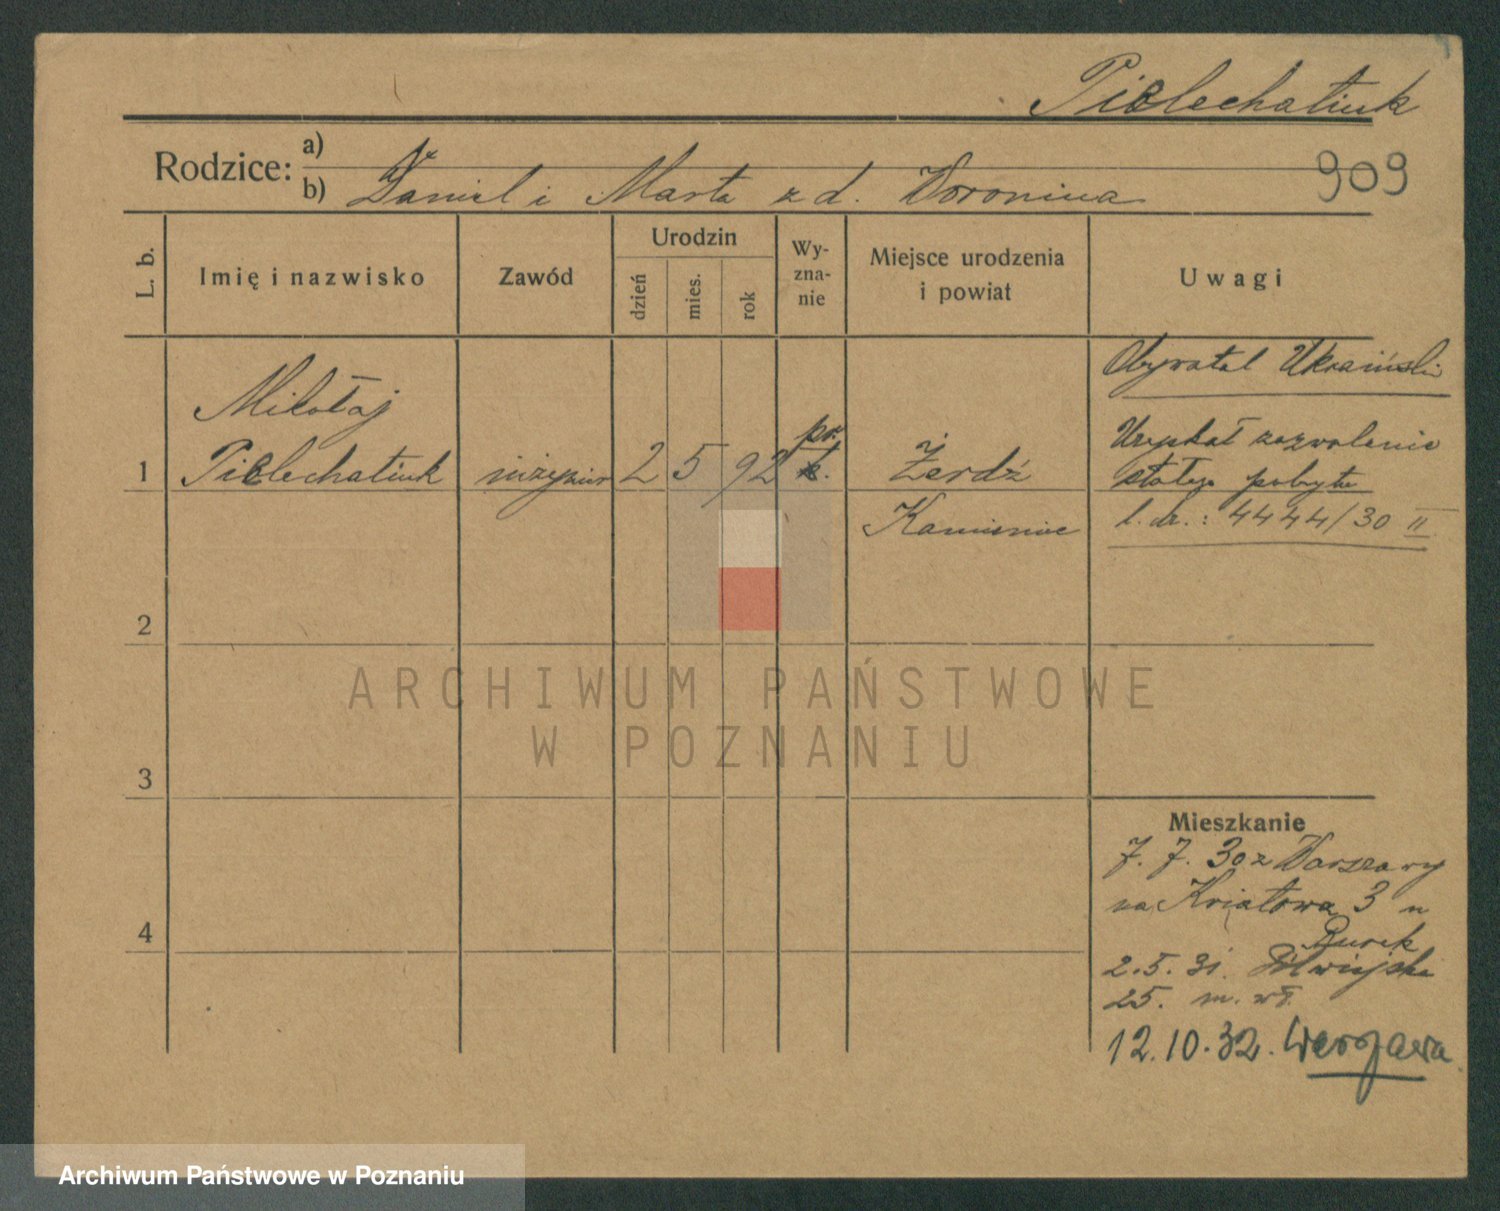 Pielechatiuk
909
Rodzice: a)
b) Daniel i Marta z d. Woronina
L. b.
Imię i nazwisko
Zawód
Urodzin
dzień
mies.
rok
Wy-
zna-
nie
Miejsce urodzenia
i powiat
Uwagi
1
Mikołaj
Pielechatiuk
inżynier
2
5
92
pr.
k.
Żerdź
Kamieniec
Obywatel Ukraiński
Uzyskał zezwolenie
stałego pobytu
l. dz.: 4444/30 II
2
3
4
Mieszkanie
7. 7. 30 z Warszawy
na Kwiatowa 3 u
Burek
2. 5. 31.
25. m. wł.
12.10.32. Warszawa
ARCHIWUM PAŃSTWOWE
W POZNANIU
Archiwum Państwowe w Poznaniu